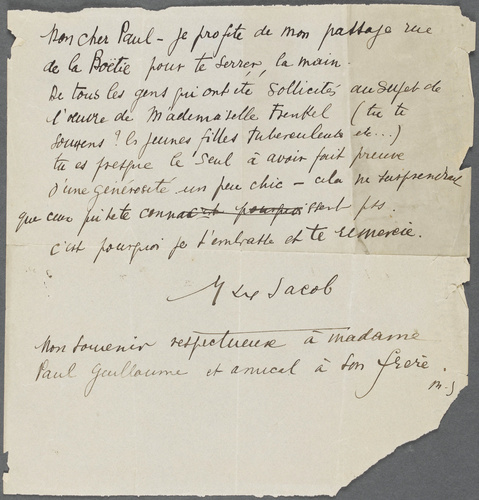 Mon cher Paul - Je profite de mon passage rue
de la Boëtie pour te serrer la main.
De tous les gens qui ont été sollicités au sujet de
l'œuvre de Mademoiselle Frenkel (tu te
souviens ? les jeunes filles tuberculeuses etc...)
tu es presque le seul à avoir fait preuve
d'une générosité un peu chic - cela ne surprendrait
que ceux qui ne te connaissent pas.
c'est pourquoi je t'embrasse et te remercie.
Max Jacob
Mon souvenir respectueux à madame
Paul Guillaume et amical à son frère.
M. J